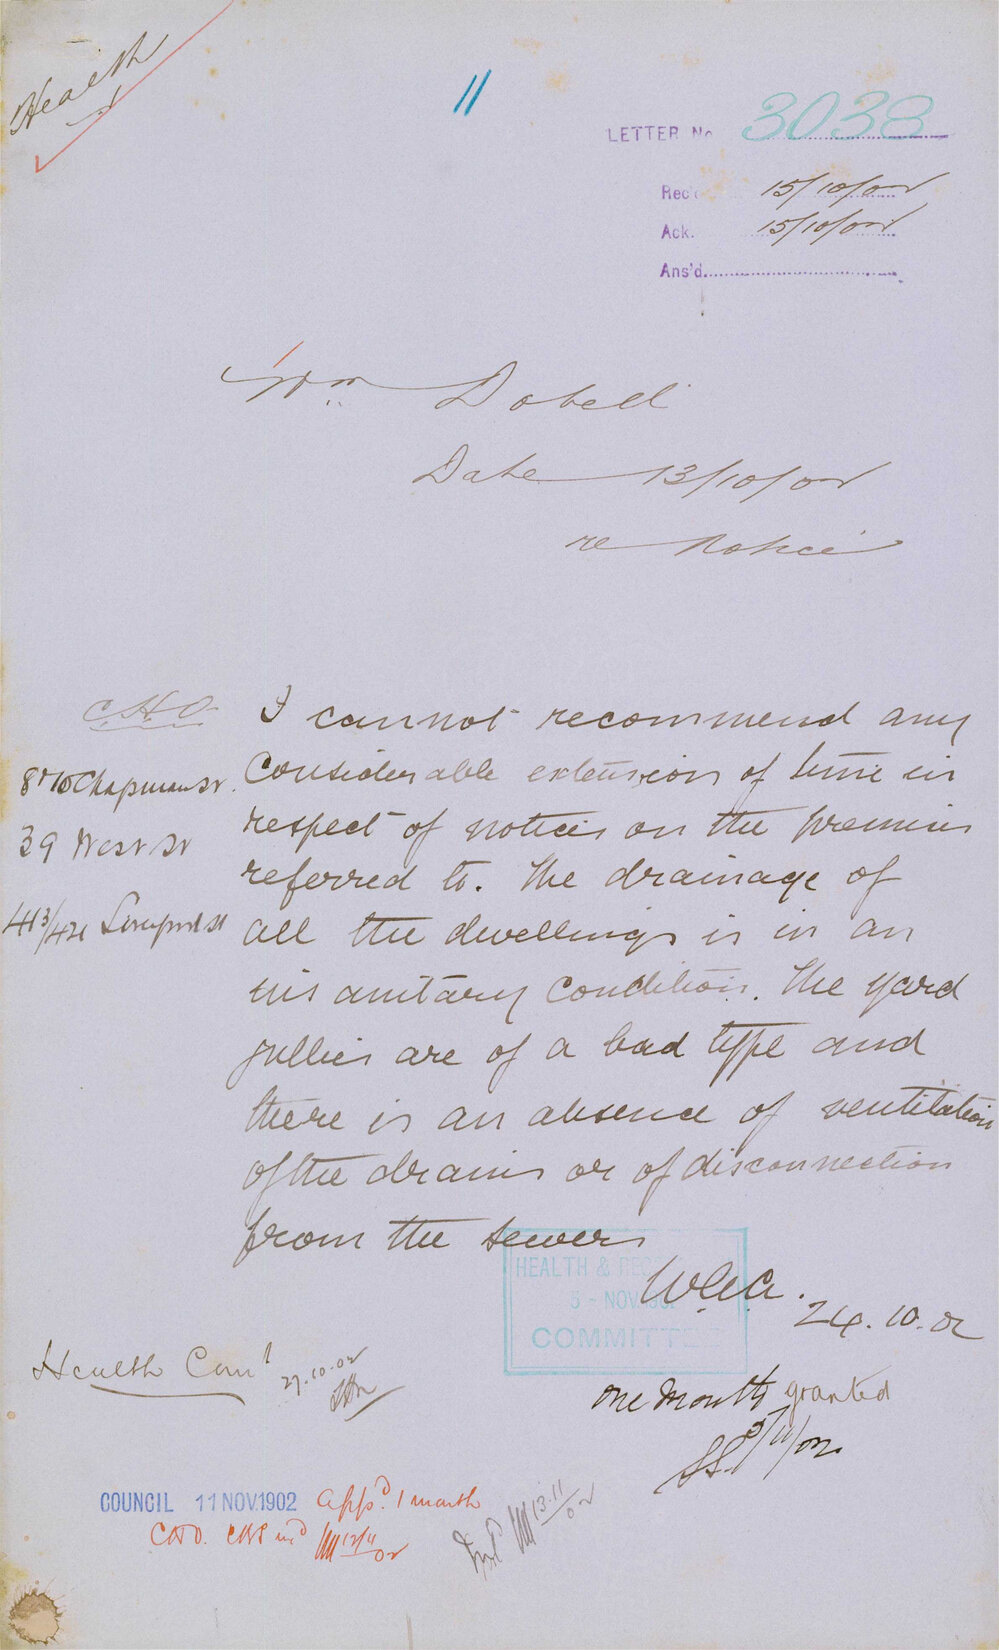 Health
11
LETTER No 3038
Rec'd 15/10/02
Ack. 15/10/02
Ans'd
Wm Dobell
Date 13/10/02
re Notice
C.H.O.
8 & 10 Chapman St.
39 West St
413/421 Liverpool St
I cannot recommend any
considerable extension of time in
respect of notices on the premises
referred to. The drainage of
all the dwellings is in an
insanitary condition. The yard
gullies are of a bad type and
there is an absence of ventilation
of the drains or of disconnection
from the sewers
W.G.A.
24.10.02
HEALTH & REC
5 - NOV 1902
COMMITTEE
Health Comt
27.10.02
one month granted
5/11/02
COUNCIL 11 NOV.1902 app'd. 1 month
CHO.
12/11/02
13.11/02